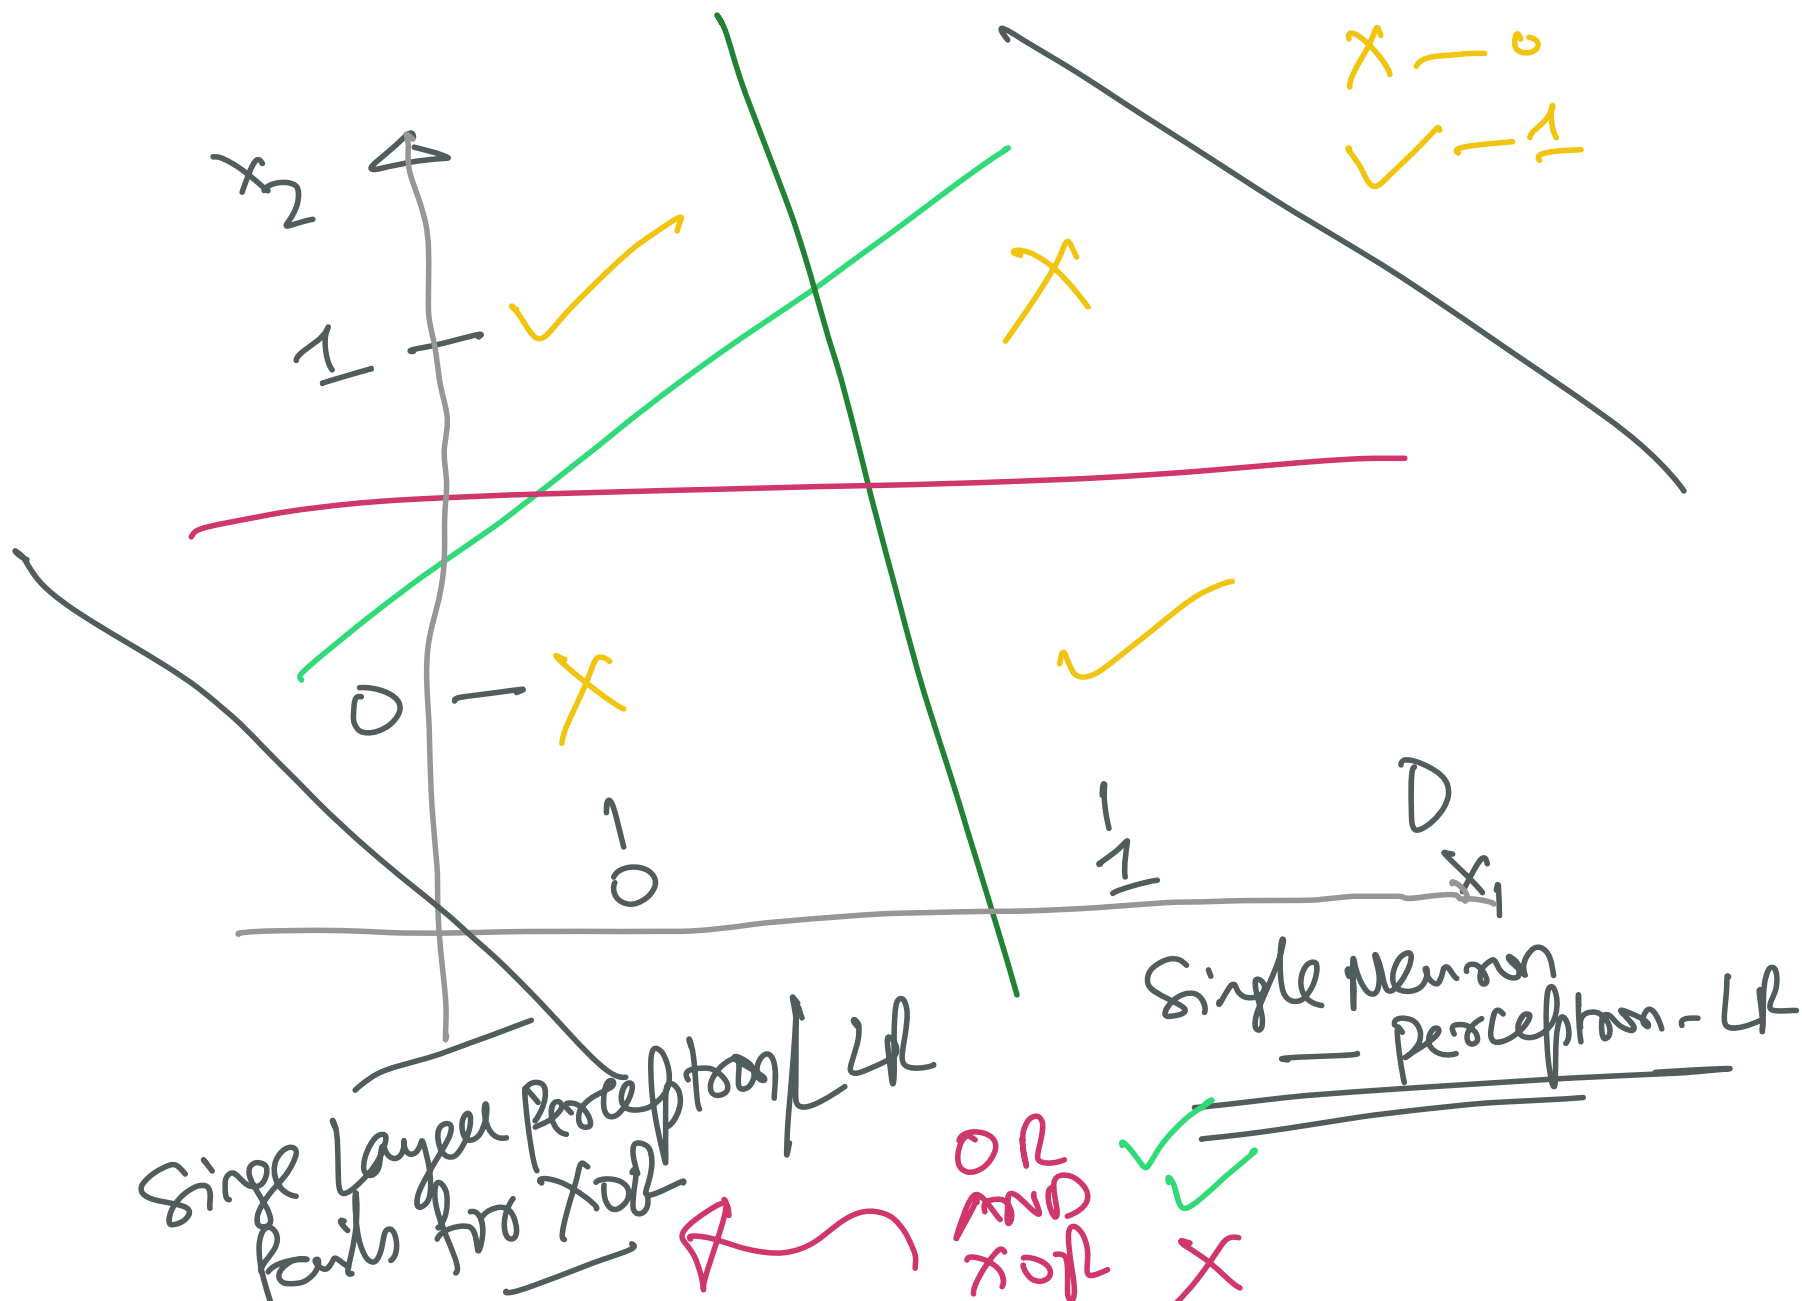 X — 0
✓ — 1
x2
1
0
0
1
D
x1
Single Neuron
— perceptron - LR
Singe Layer Perceptron / LR
fails for XOR
OR ✓
AND ✓
XOR X